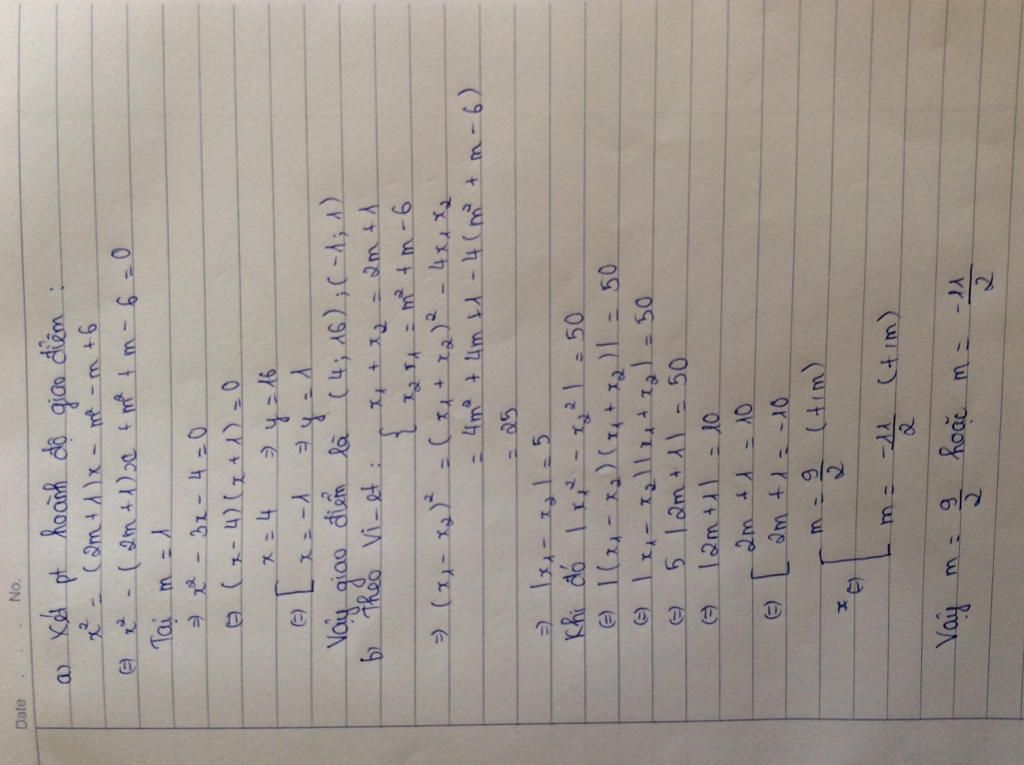 Date No.
a) Xét pt hoành độ giao điểm :
x² = (2m+1)x - m² - m + 6
(=) x² - (2m+1)x + m² + m - 6 = 0
Tại m = 1
=) x² - 3x - 4 = 0
(=) (x-4)(x+1) = 0
(=) [ x = 4 => y = 16
x = -1 => y = 1
Vậy giao điểm là (4; 16) ; (-1; 1)
b) Theo Vi-et : { x₁ + x₂ = 2m+1
x₂x₁ = m² + m - 6
=) (x₁ - x₂)² = (x₁ + x₂)² - 4x₁x₂
= 4m² + 4m + 1 - 4(m² + m - 6)
= 25
=) |x₁ - x₂| = 5
Khi đó |x₁² - x₂²| = 50
(=) |(x₁ - x₂)(x₁ + x₂)| = 50
(=) |x₁ - x₂||x₁ + x₂| = 50
(=) 5 |2m+1| = 50
(=) |2m+1| = 10
(=) [ 2m+1 = 10
2m+1 = -10
(=) [ m = 9/2 (t/m)
m = -11/2 (t/m)
Vậy m = 9/2 hoặc m = -11/2